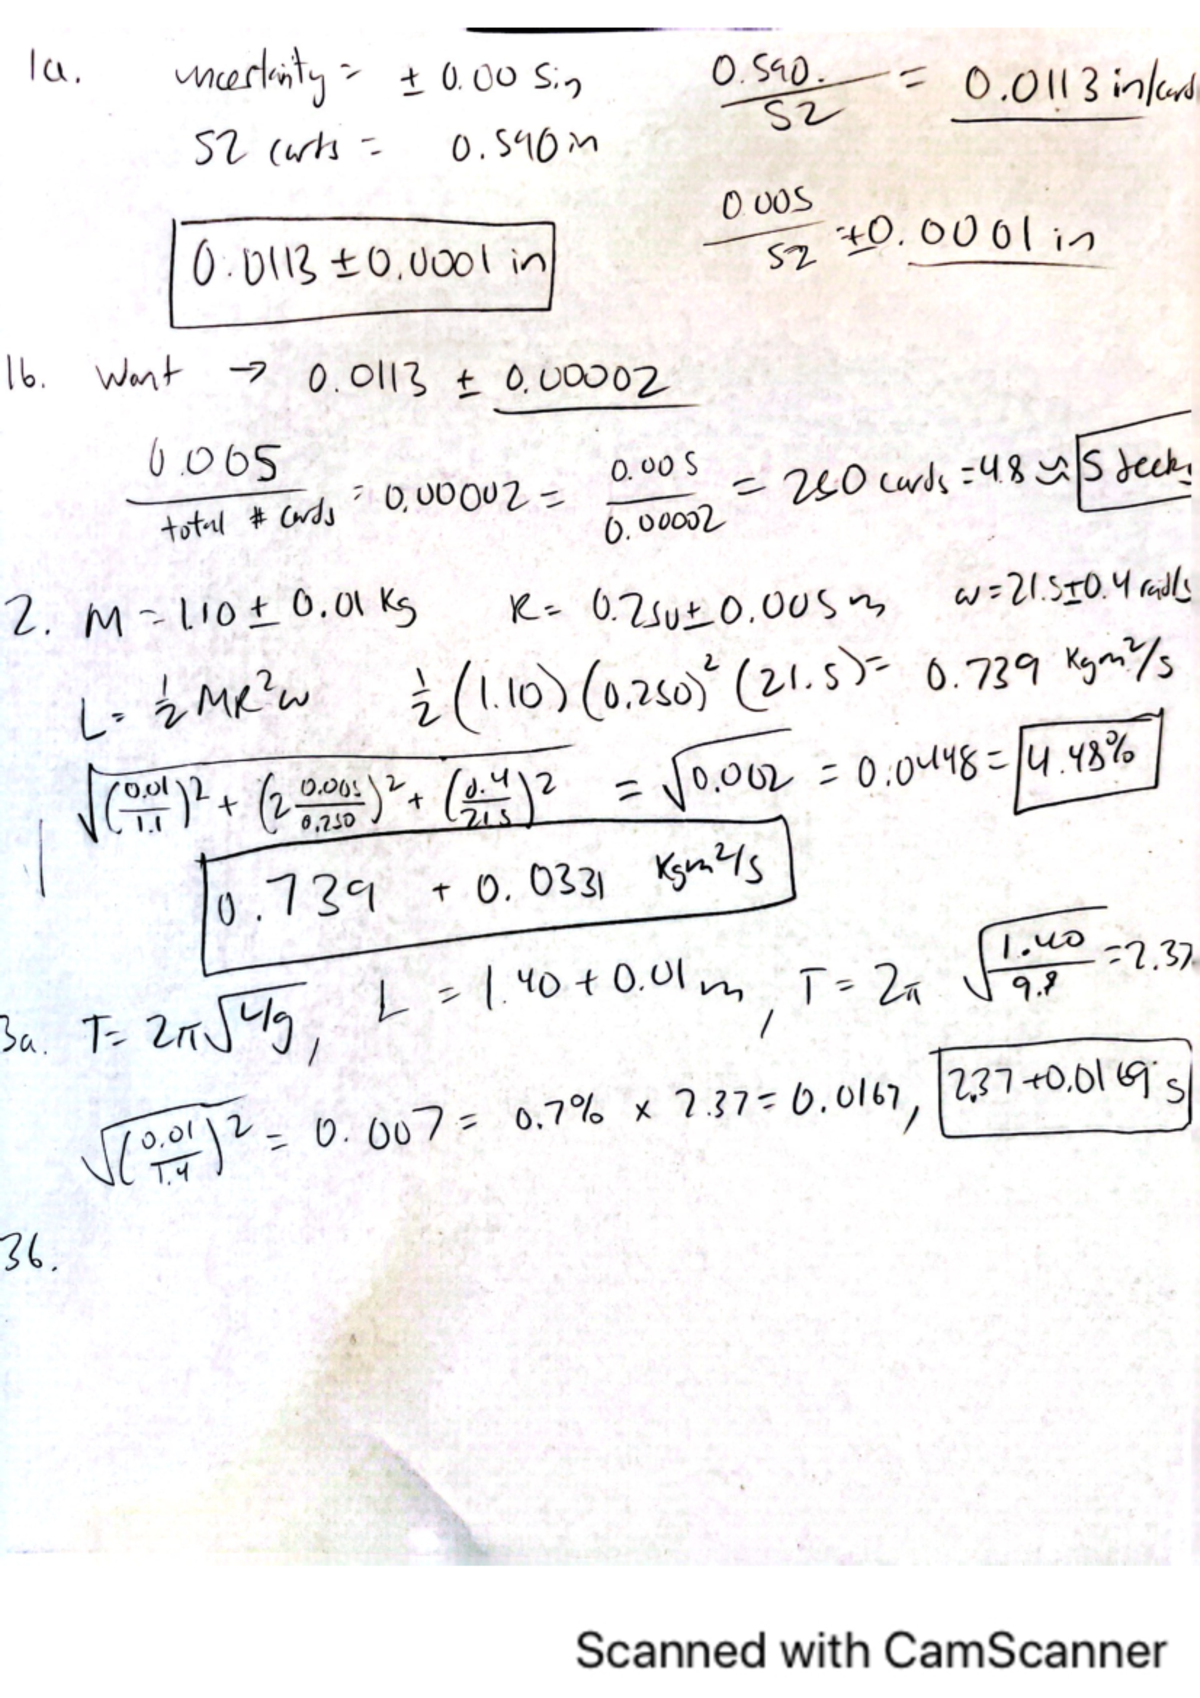 1a. uncertainty = ± 0.005in 0.590 / 52 = 0.0113 in/card
52 cards = 0.590in
0.005 / 52 = ±0.0001 in
0.0113 ± 0.0001 in
1b. Want → 0.0113 ± 0.00002
0.005 / total # cards = 0.00002 = 0.005 / 0.00002 = 250 cards = 4.8 ≈ 5 decks
2. M = 1.10 ± 0.01 Kg R = 0.250 ± 0.005 m ω = 21.5±0.4 rad/s
L = 1/2 MR²ω 1/2 (1.10)(0.250)² (21.5) = 0.739 Kgm²/s
√((0.01/1.1)² + (2 0.005/0.250)² + (0.4/21.5)²) = √0.002 = 0.0448 = 4.48%
0.739 + 0.0331 Kgm²/s
3a. T = 2π√L/g, L = 1.40 + 0.01 m, T = 2π √(1.40/9.8) = 2.37
√(0.01/1.4)² = 0.007 = 0.7% × 2.37 = 0.0167, 2.37+0.0169 s
3b.
Scanned with CamScanner